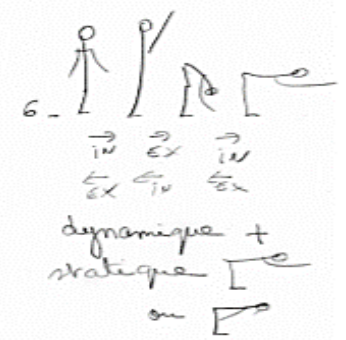 6 -
→ IN → EX → IN
← EX ← IN ← EX
dynamique +
statique
ou